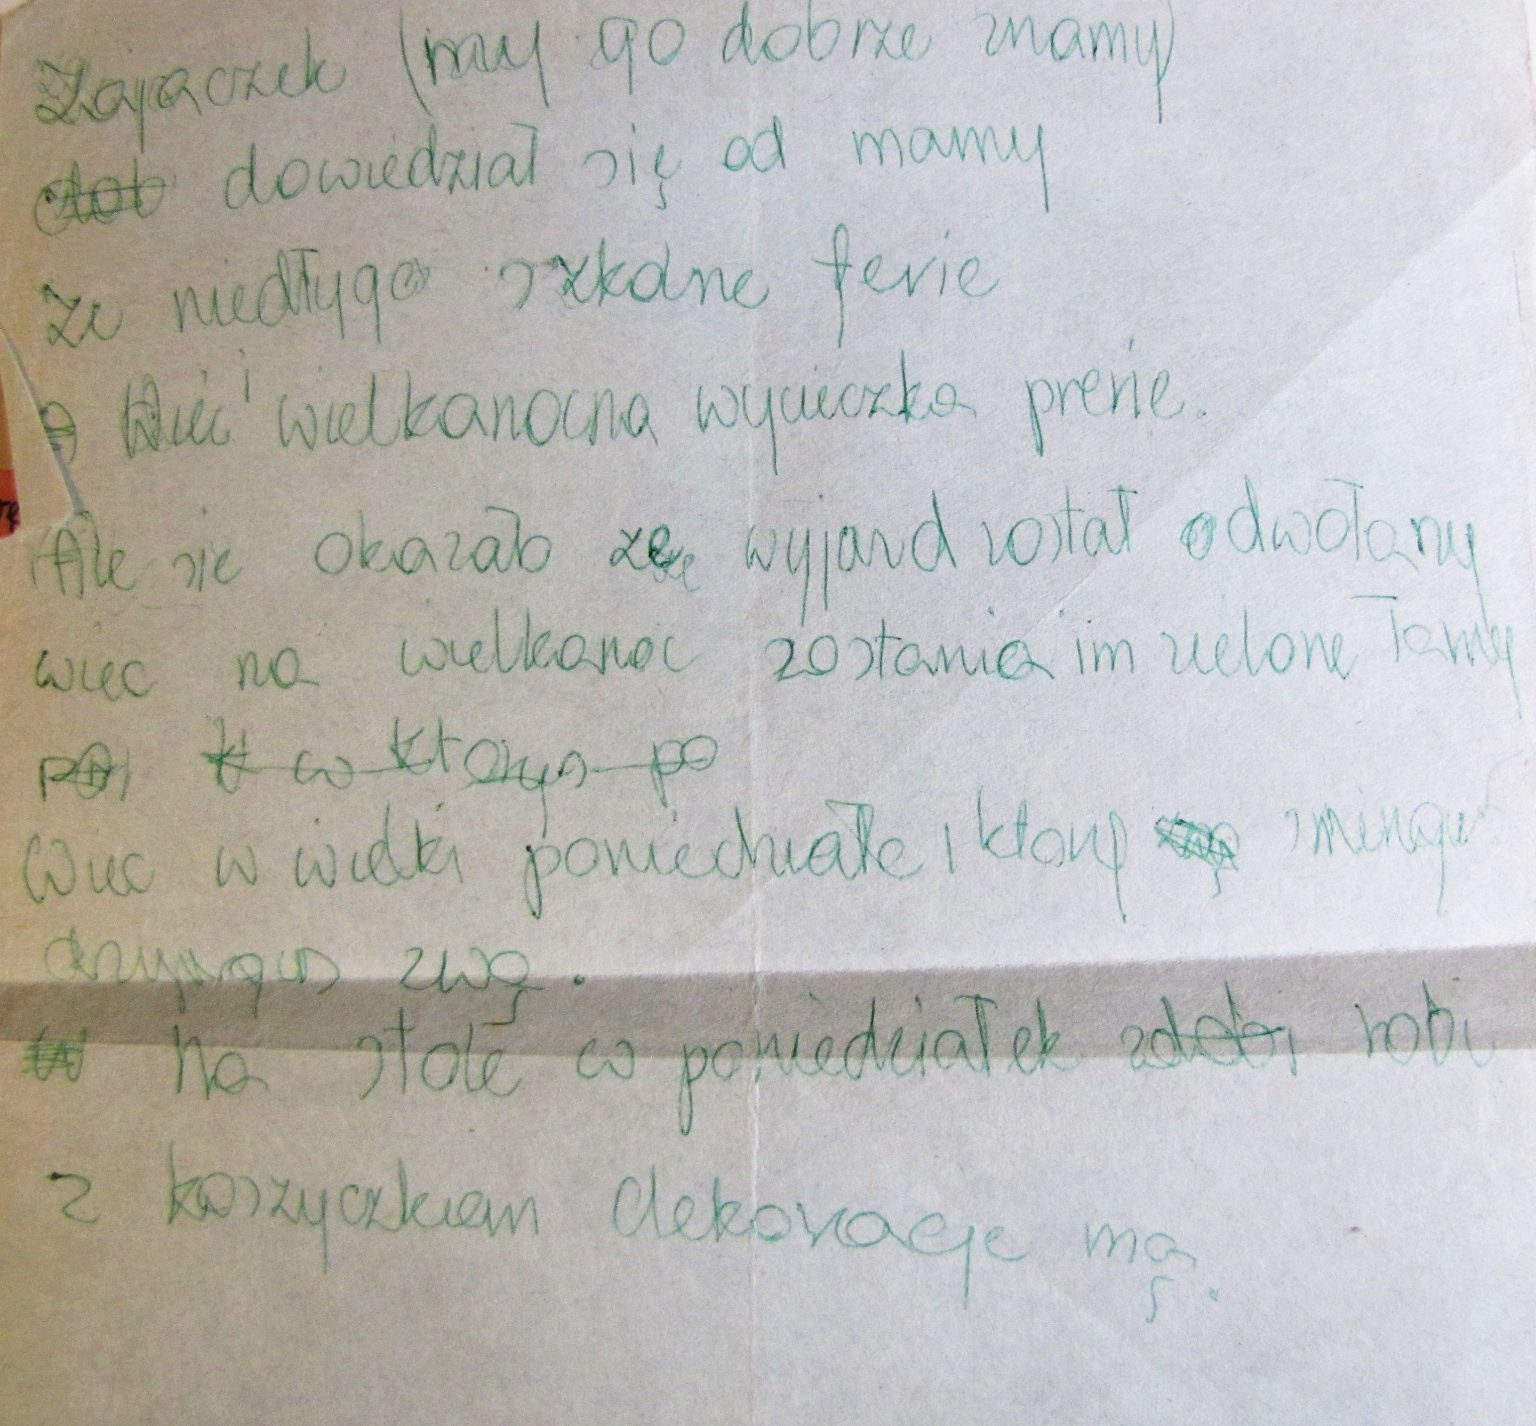 Zajączek (my go dobrze znamy)
dowiedział się od mamy
że niedłygo szkolne ferie
więc i wielkanocna wycieczka prerie.
Ale sie okazało że wyjazd został odwołany
wiec na wielkanoc zostania im zielone łamy
w ktorys po
Wiec w wielki poniedziałe, ktory śmingus
dzyngus zwą.
Na stole w poniedziałek robi
z koszyczkiem dekoracje mą.